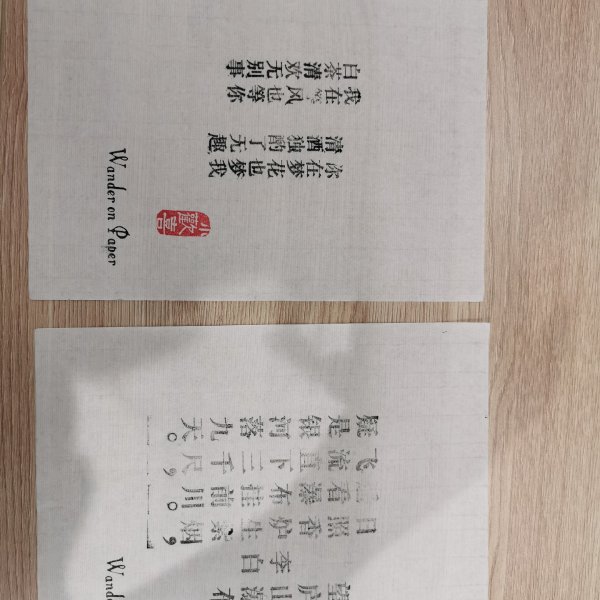 白茶清欢无别事
我在等风也等你
清酒独酌了无趣
你在梦花也梦我
Wander on Paper
庐山瀑布
李白
日照香炉生紫烟，
看瀑布挂前川。
飞流直下三千尺，
疑是银河落九天。
Wande